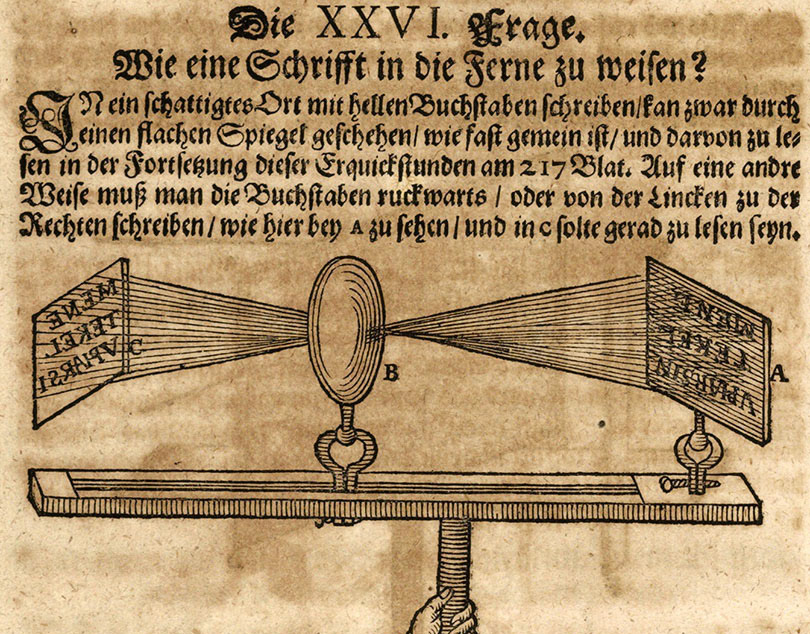 Die XXVI. Frage.
Wie eine Schrifft in die Ferne zu weisen?
IN ein schattigtes Ort mit hellen Buchstaben schreiben/kan zwar durch
einen flachen Spiegel geschehen/ wie fast gemein ist/ und darvon zu le-
sen in der Fortsetzung dieser Erquickstunden am 217 Blat. Auf eine andre
Weise muß man die Buchstaben ruckwarts / oder von der Lincken zu der
Rechten schreiben / wie hier bey A zu sehen / und in C solte gerad zu lesen seyn.
MENE
TEKEL
VPARSI
C
B
MENE
TEKEL
VPARSIN
A